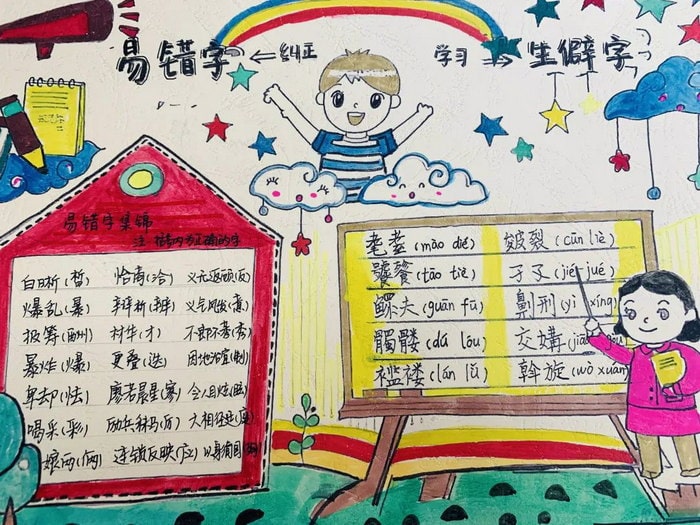 易错字 ←纠正 学习→ 生僻字
易错字集锦
注:括号内为正确的字
白晰(皙) 恰商(洽) 义无返顾(反)
爆乱(暴) 辩析(辨) 义气风发(意)
报筹(酬) (才)
暴炸(爆) 更叠(迭) 因地治宜(制)
卑却(怯) 廖若晨星(寥) 令人目炫(眩)
喝采(彩) 励兵秣马(厉) 大相径廷(庭)
娘两(俩) 连锁反映(应)
耄耋(mào dié) 皴裂(cūn liè)
饕餮(tāo tiè) 孑孓(jié jué)
鳏夫(guān fū) 劓刑(yì xíng)
髑髅(dú lóu) 交媾
褴褛(lán lǚ) 斡旋(wò xuán)